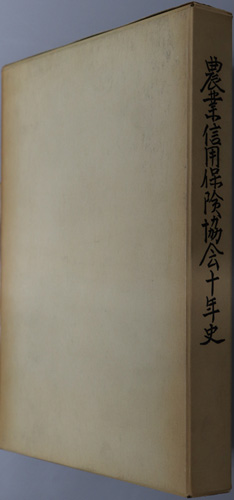 農業信用保険協会十年史